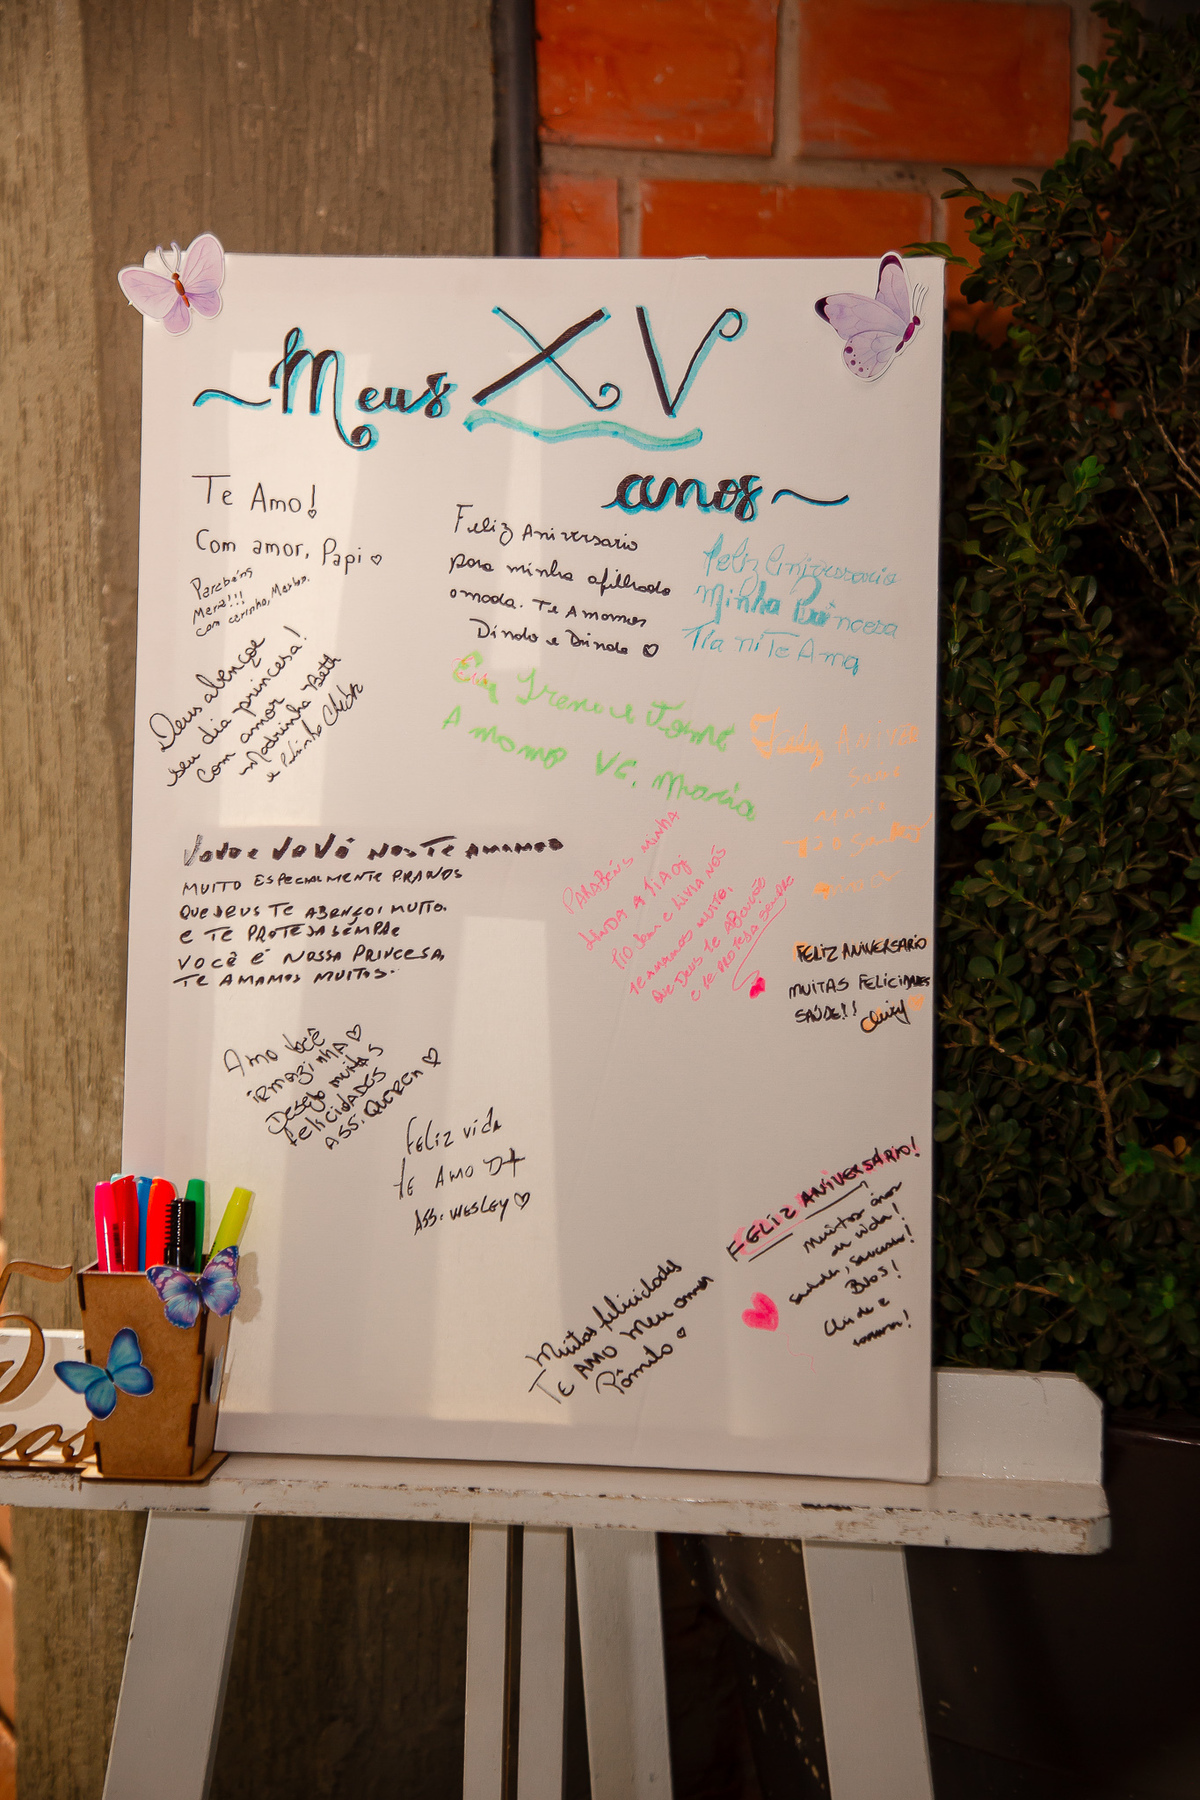 Meus XV
anos
Te Amo!
Com amor, Papi
Parabéns
com carinho,
Deus abençoe
seu dia princesa!
Com amor
Madrinha Beth
e
Feliz Aniversario
para minha afilhada
amada. Te Amamos
Dindo e Dinda
Feliz
Minha Princesa
Tia ni Te Amo
Irene e Tomé
Amamo VC. Maria
Feliz
VoVo e VoVó NOS Te AMAMOS
MUITO ESPECIALMENTE PRANOS
QUE DEUS TE ABENÇOI MUITO.
E TE PROTEJA SEMPRE
VOCÊ É NOSSA PRINCESA,
TE AMAMOS MUITOS.
PARABÉNS MINHA
LINDA A TIA
TIO e LIVIA NÓS
TE AMAMOS MUITO,
QUE DEUS TE ABENÇÕE
E TE PROTEJA SEMPRE
FELIZ ANIVERSARIO
MUITAS FELICIDADES
SAÚDE!!
Amo você
irmazinha
Desejo muitas
felicidades
ASS. QUEREN
FELIZ vida
TE AMO D+
ASS: WESLEY
FELIZ ANIVERSÁRIO!
Muitos anos
de vida!
Saúde, sucesso!
Bjos!
Muitas felicidades
TE AMO Meu amor
Rômulo